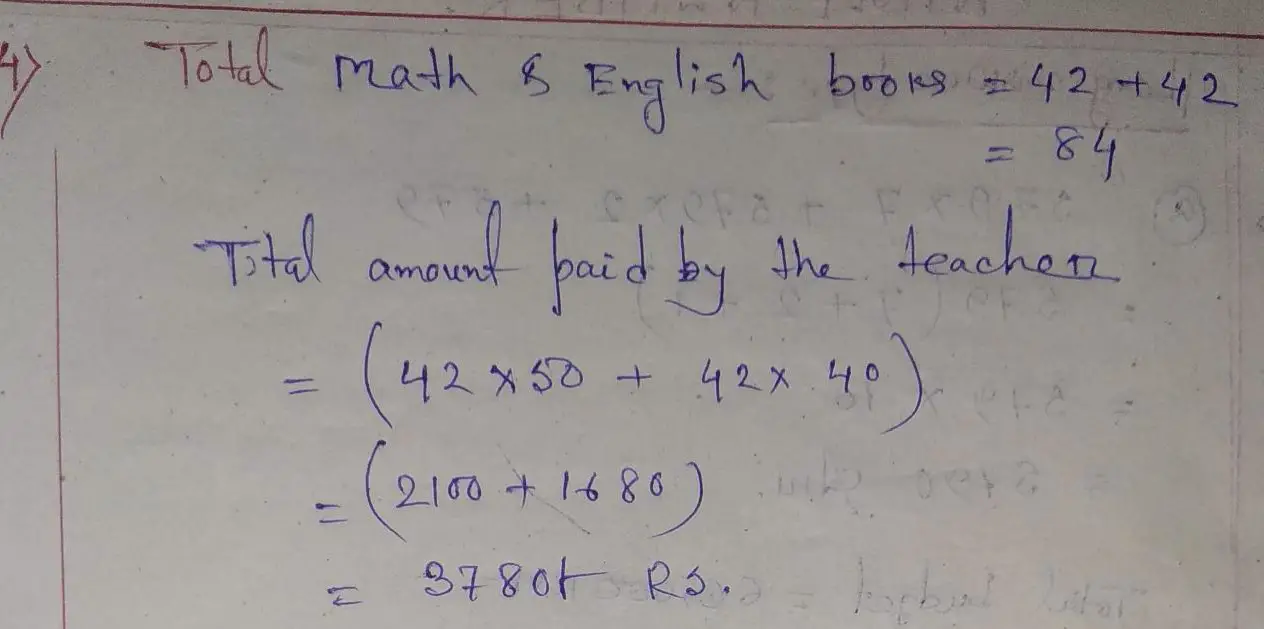 4)
Total Math & English books = 42 + 42
= 84
Total amount paid by the teacher
= (42 x 50 + 42 x 40)
= (2100 + 1680)
= 3780 Rs.